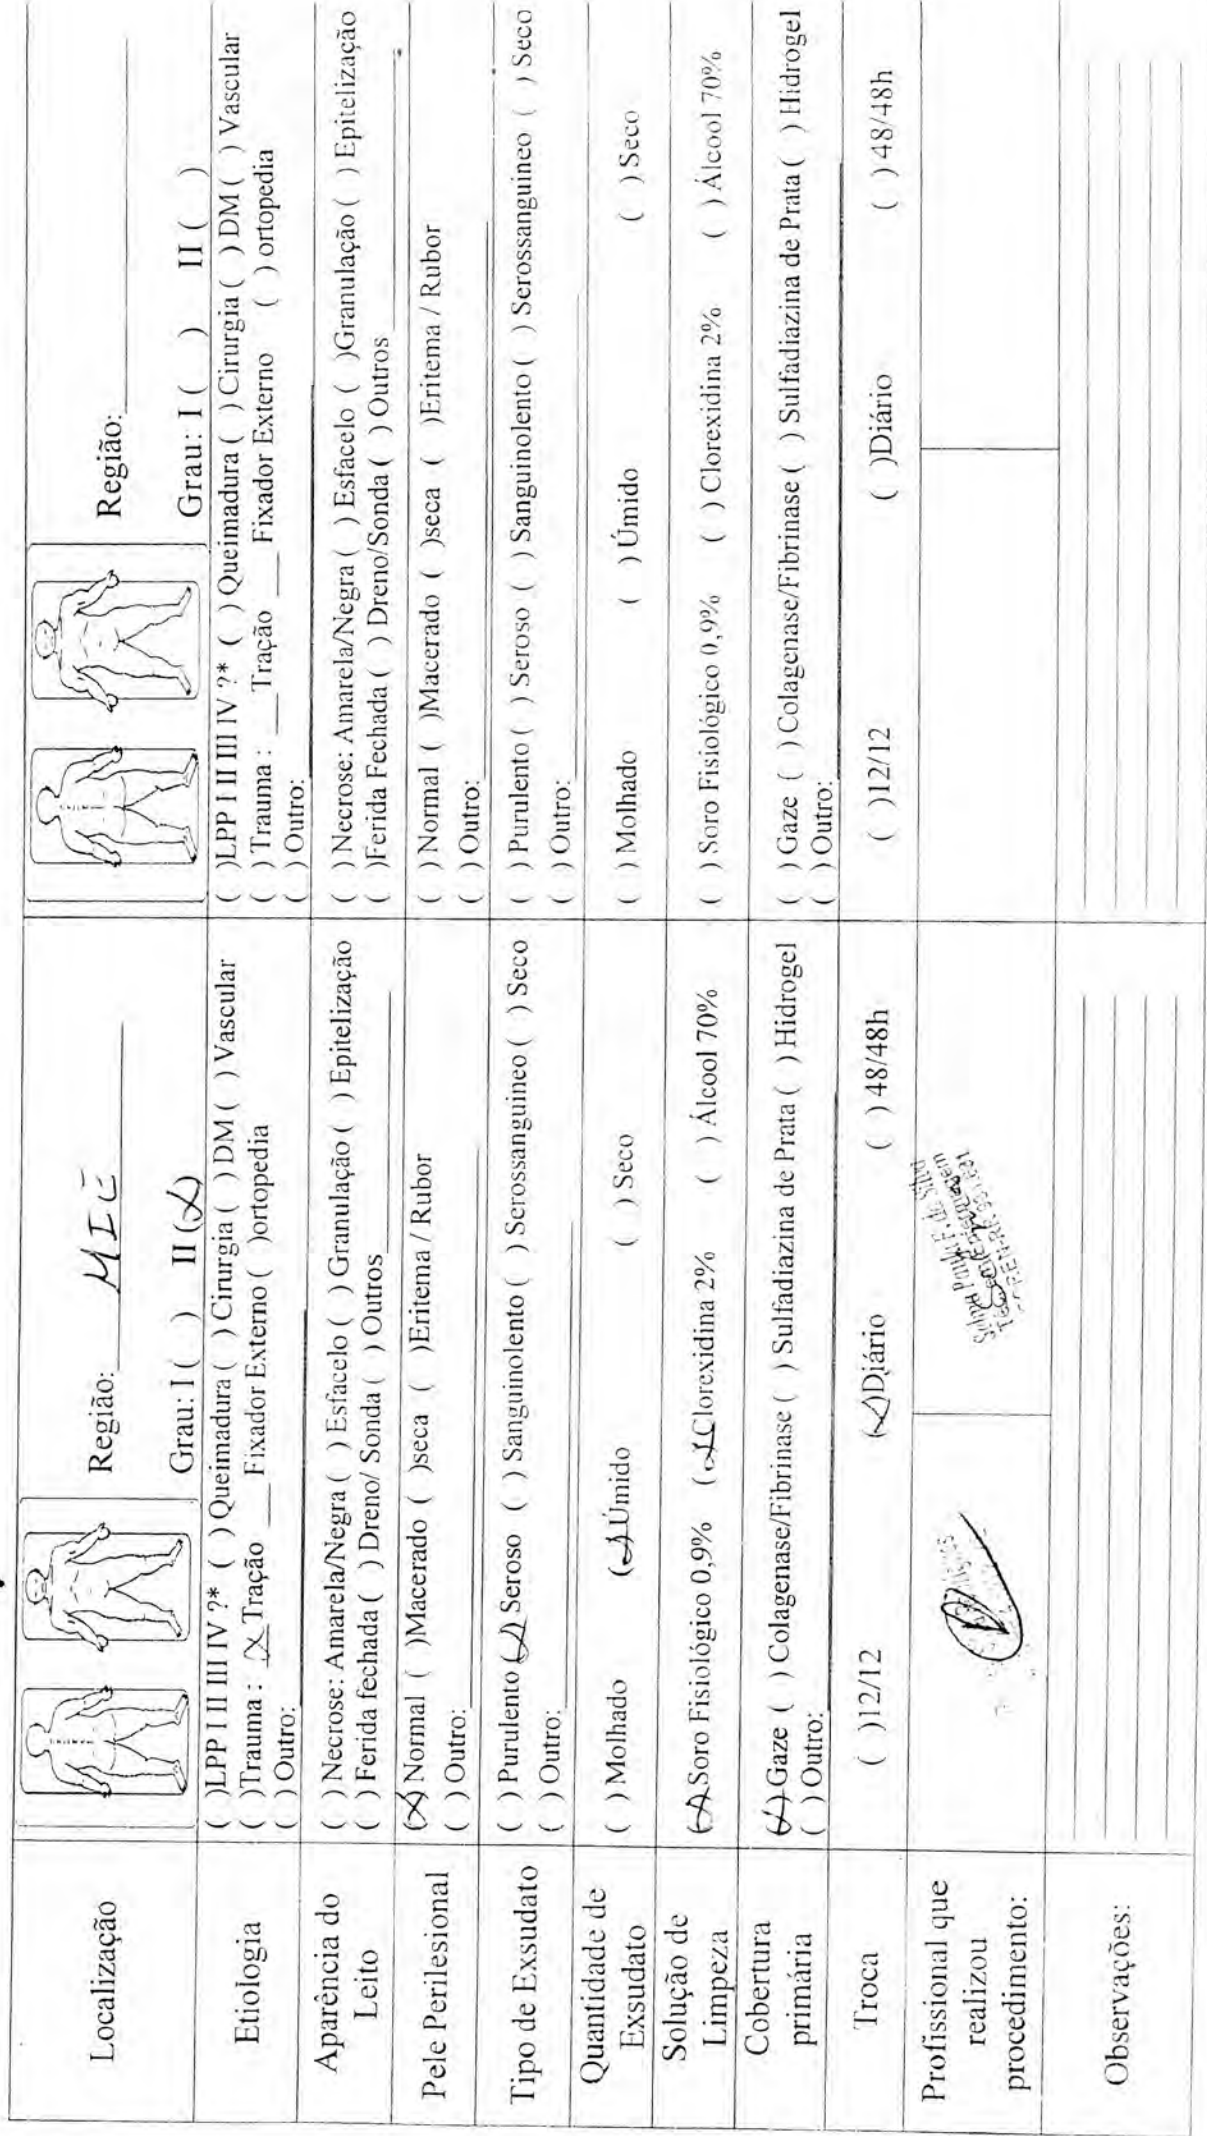 Localização
Região: MIE
Grau: I ( ) II (X)
Região:
Grau: I ( ) II ( )
Etiologia
( )LPP I II III IV ?* ( ) Queimadura ( ) Cirurgia ( ) DM ( ) Vascular
( )Trauma : X Tração ___ Fixador Externo ( )ortopedia
( ) Outro:
( )LPP I II III IV ?* ( ) Queimadura ( ) Cirurgia ( ) DM ( ) Vascular
( ) Trauma : ___ Tração ___ Fixador Externo ( ) ortopedia
( ) Outro:
Aparência do
Leito
( ) Necrose: Amarela/Negra ( ) Esfacelo ( ) Granulação ( ) Epitelização
( ) Ferida fechada ( ) Dreno/ Sonda ( ) Outros
( ) Necrose: Amarela/Negra ( ) Esfacelo ( )Granulação ( ) Epitelização
( )Ferida Fechada ( ) Dreno/Sonda ( ) Outros
Pele Perilesional
(X) Normal ( )Macerado ( )seca ( )Eritema / Rubor
( ) Outro:
( ) Normal ( )Macerado ( )seca ( )Eritema / Rubor
( ) Outro:
Tipo de Exsudato
( ) Purulento (X) Seroso ( ) Sanguinolento ( ) Serossanguineo ( ) Seco
( ) Outro:
( ) Purulento ( ) Seroso ( ) Sanguinolento ( ) Serossanguineo ( ) Seco
( ) Outro:
Quantidade de
Exsudato
( ) Molhado (X) Úmido ( ) Seco
( ) Molhado ( ) Úmido ( ) Seco
Solução de
Limpeza
(X) Soro Fisiológico 0,9% (X) Clorexidina 2% ( ) Álcool 70%
( ) Soro Fisiológico 0,9% ( ) Clorexidina 2% ( ) Álcool 70%
Cobertura
primária
(X) Gaze ( ) Colagenase/Fibrinase ( ) Sulfadiazina de Prata ( ) Hidrogel
( ) Outro:
( ) Gaze ( ) Colagenase/Fibrinase ( ) Sulfadiazina de Prata ( ) Hidrogel
( ) Outro:
Troca
( )12/12 (X)Diário ( ) 48/48h
( )12/12 ( )Diário ( ) 48/48h
Profissional que
realizou
procedimento:
Paula F. da Silva
Observações: